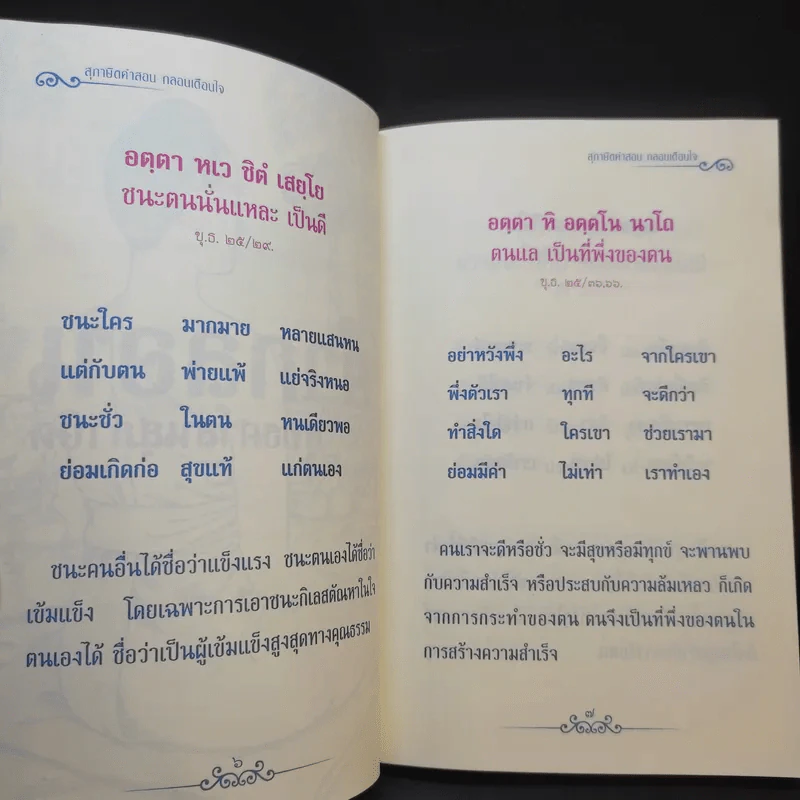 สุภาษิตคำสอน กลอนเตือนใจ
อตฺตา หเว ชิตํ เสยฺโย
ชนะตนนั่นแหละ เป็นดี
ขุ.ธ. ๒๕/๒๙.
ชนะใคร มากมาย หลายแสนหน
แต่กับตน พ่ายแพ้ แย่จริงหนอ
ชนะชั่ว ในตน หนเดียวพอ
ย่อมเกิดก่อ สุขแท้ แก่ตนเอง
ชนะคนอื่นได้ชื่อว่าแข็งแรง ชนะตนเองได้ชื่อว่า
เข้มแข็ง โดยเฉพาะการเอาชนะกิเลสตัณหาในใจ
ตนเองได้ ชื่อว่าเป็นผู้เข้มแข็งสูงสุดทางคุณธรรม
๖
สุภาษิตคำสอน กลอนเตือนใจ
อตฺตา หิ อตฺตโน นาโถ
ตนแล เป็นที่พึ่งของตน
ขุ.ธ. ๒๕/๓๖,๖๖.
อย่าหวังพึ่ง อะไร จากใครเขา
พึ่งตัวเรา ทุกที จะดีกว่า
ทำสิ่งใด ใครเขา ช่วยเรามา
ย่อมมีค่า ไม่เท่า เราทำเอง
คนเราจะดีหรือชั่ว จะมีสุขหรือมีทุกข์ จะพานพบ
กับความสำเร็จ หรือประสบกับความล้มเหลว ก็เกิด
จากการกระทำของตน ตนจึงเป็นที่พึ่งของตนใน
การสร้างความสำเร็จ
๗